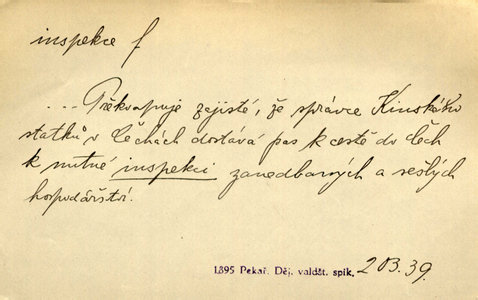 inspekce f
... Překvapuje zajisté, že správce Kinského
statků v Čechách dostává pas k cestě do Čech
k nutné inspekci zanedbaných a sešlých
hospodářství.
1895 Pekař. Děj. valdšt. spik, 203.39.